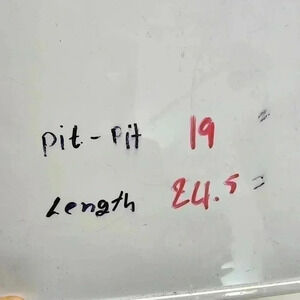 Pit - Pit 19 "
Length 24.5 "